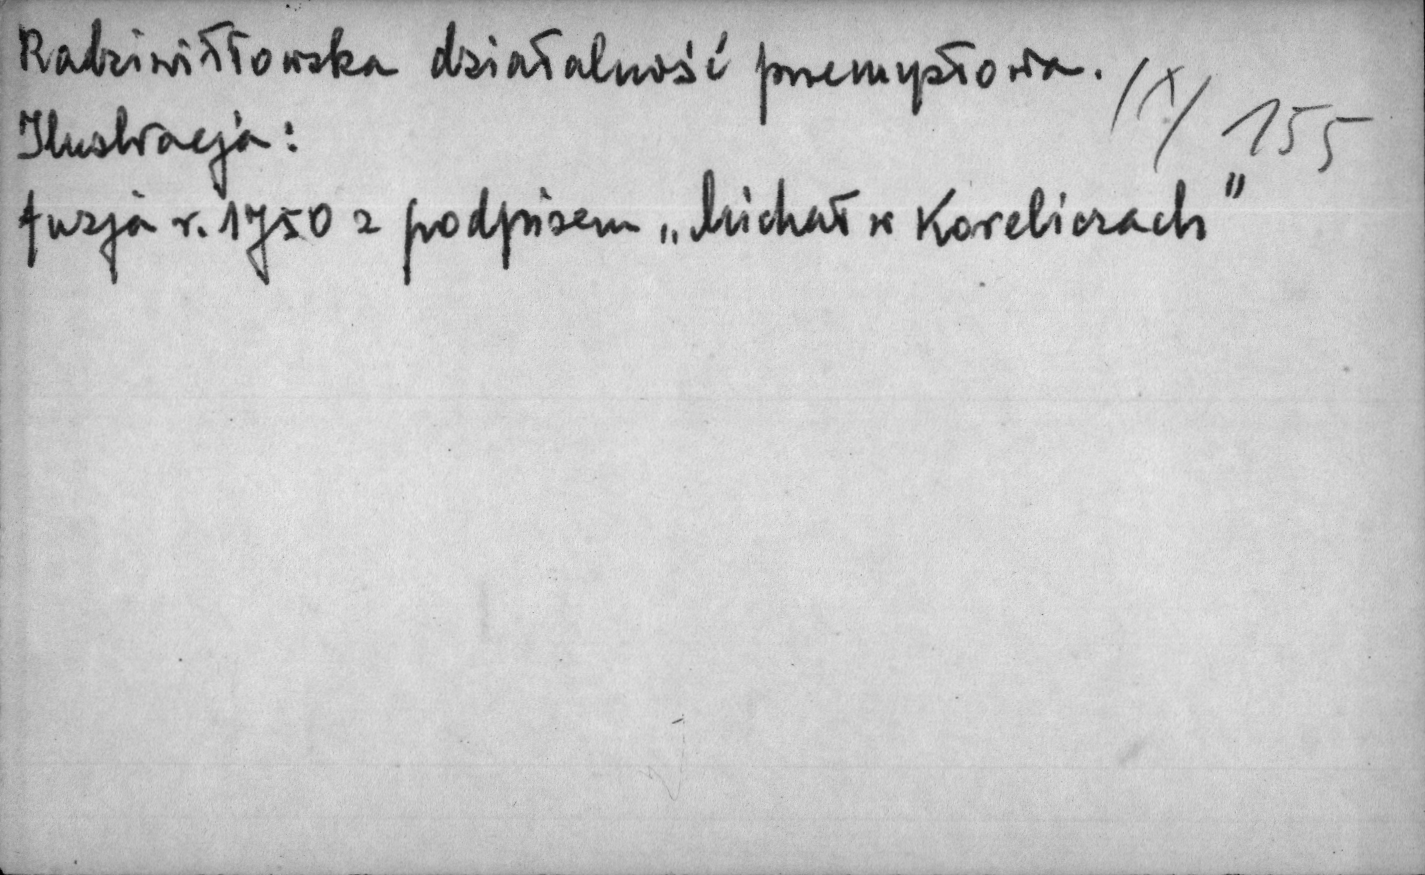 Radziwiłłowska działalność przemysłowa. /X/ 155
Ilustracja:
fuzja r. 1750 z podpisem „Michał w Koreliczach”